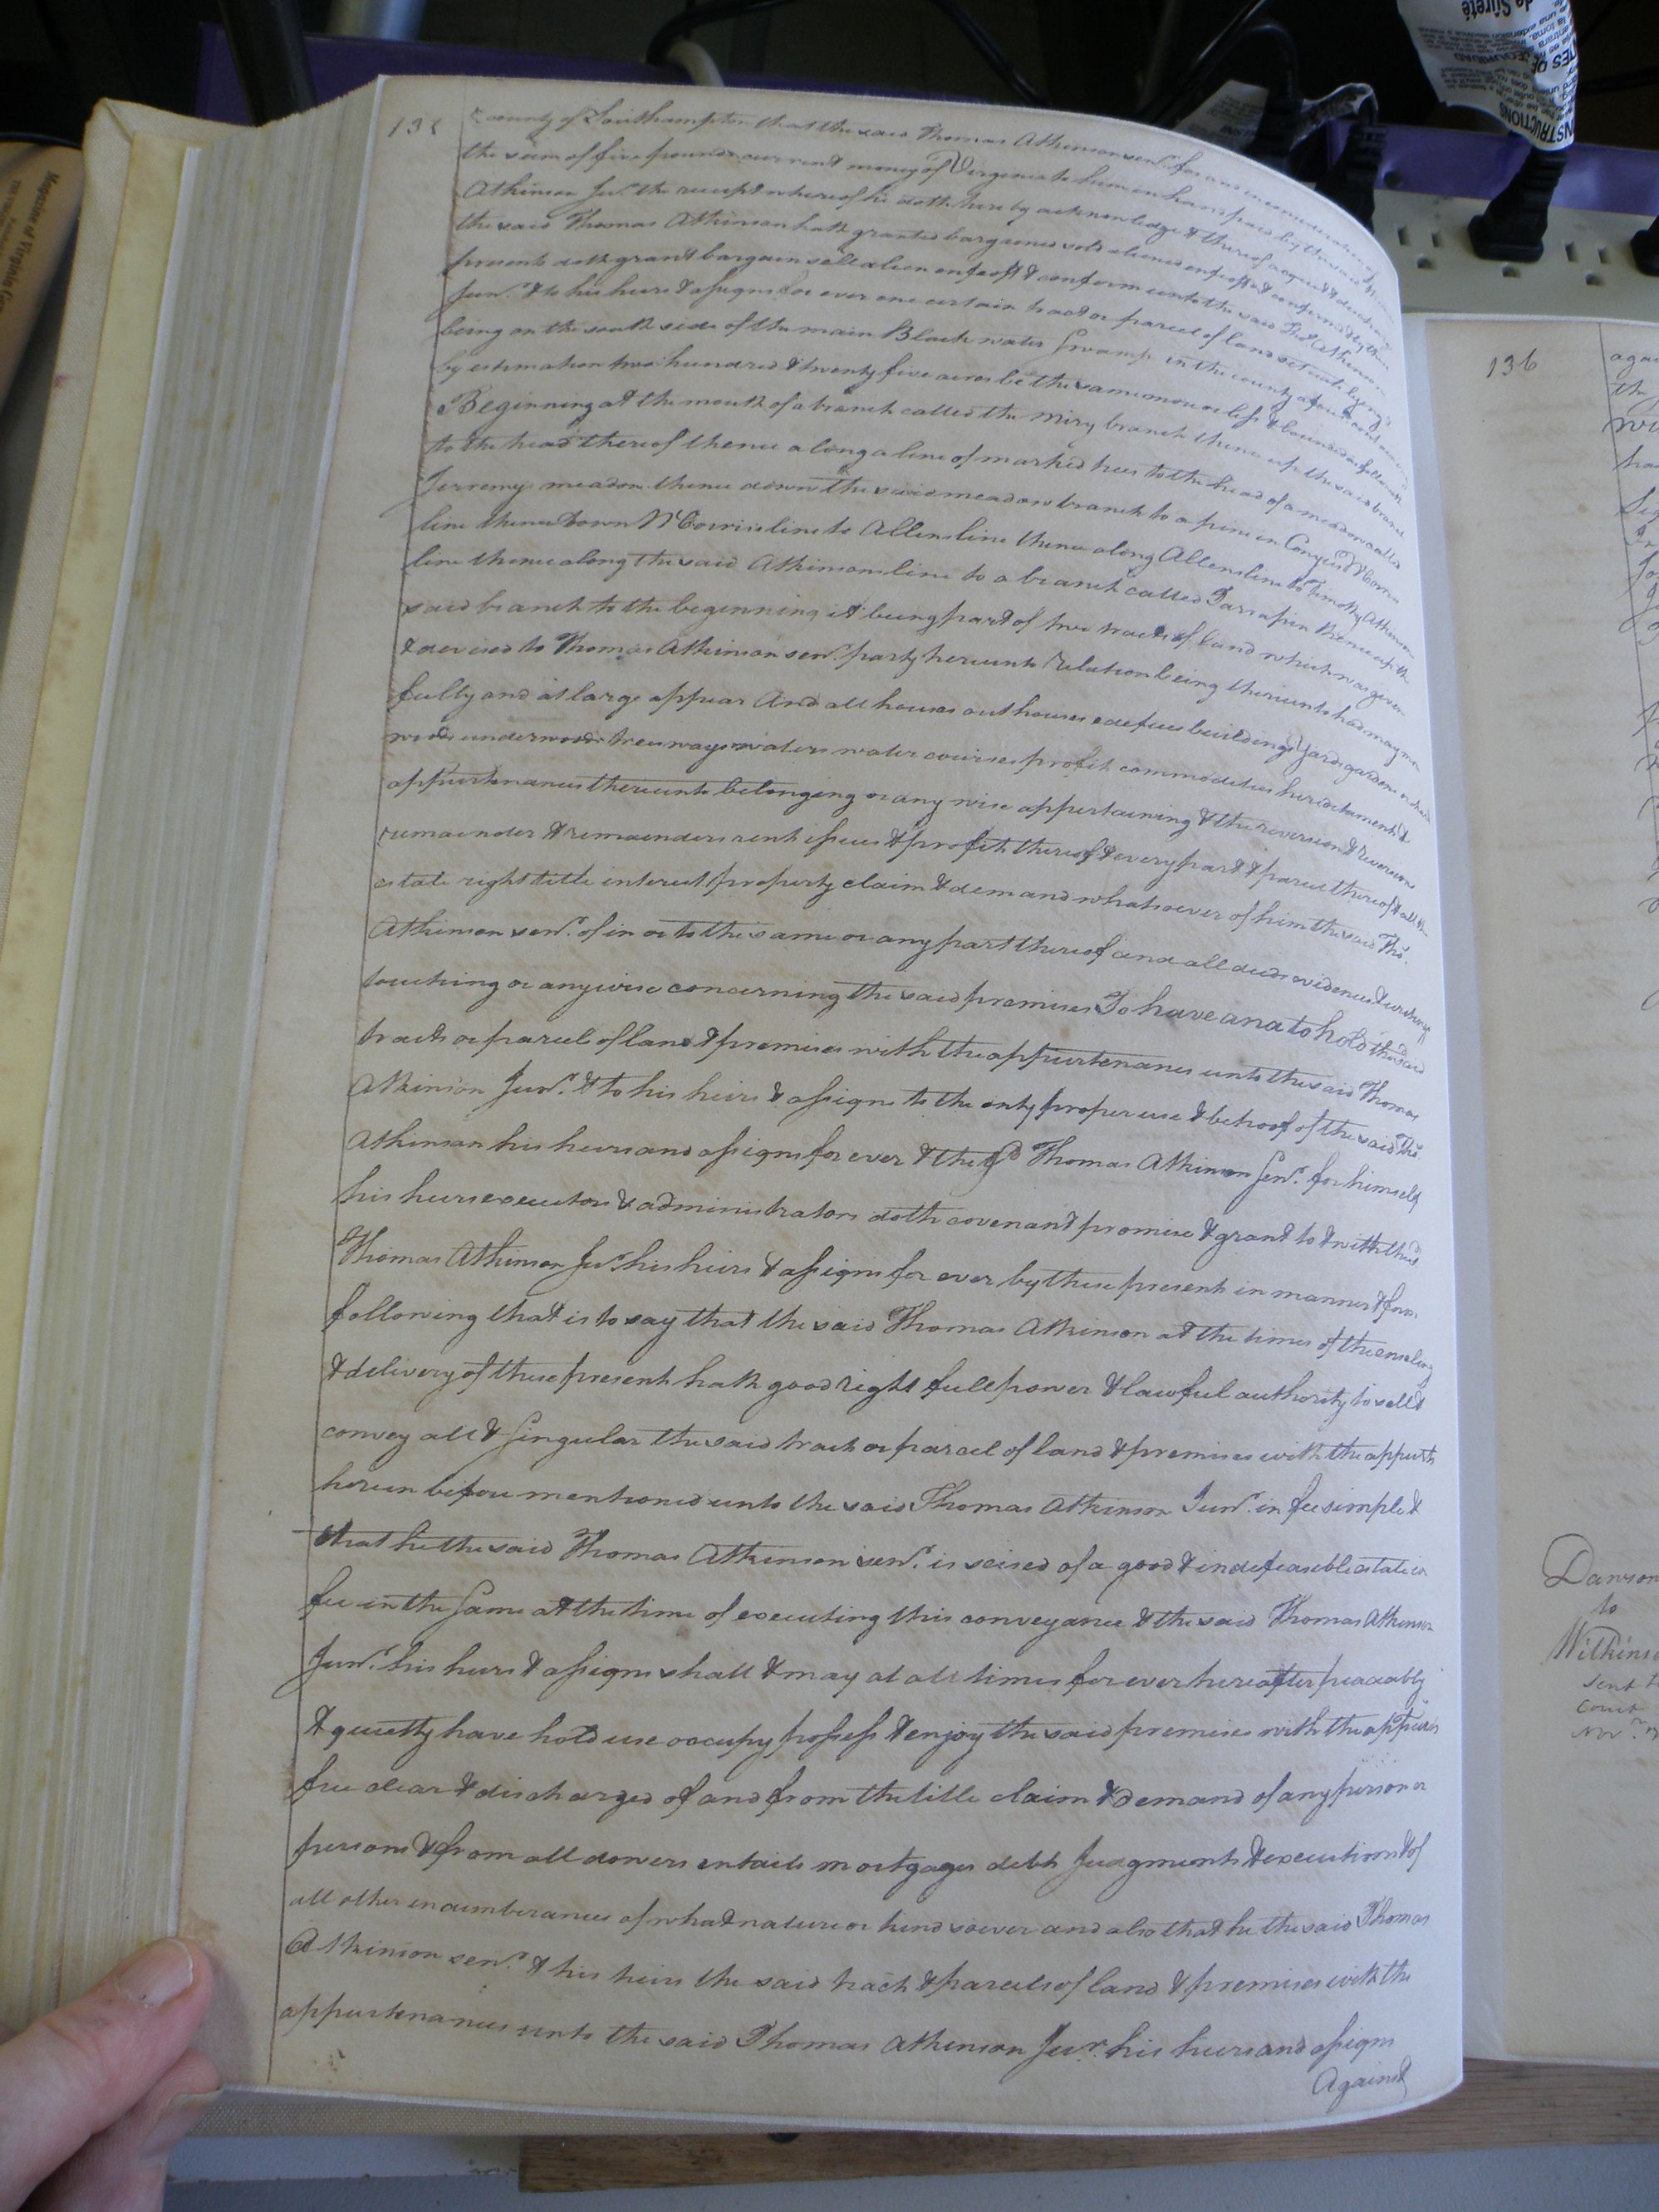 135
County of Southampton that the said Thomas Atkinson Senr. for and in consideration of
the sum of five pounds current money of Virginia to him in hand paid by the said Thomas
Atkinson Junr. the receipt whereof he doth hereby acknowledge & thereof acquit &
the said Thomas Atkinson hath granted bargained sold aliened enfeoft & confirmed & by these
presents doth grant bargain sell alien enfeoft & conform unto the said Thos. Atkinson
Junr. & to his heirs & assigns for ever one certain tract or parcel of land situate lying &
being on the south side of the main Black water Swamp in the county aforesaid
by estimation two hundred & twenty five acres be the same more or less & bounded as followeth
Beginning at the mouth of a branch called the Miry branch thence up the said branch
to the head thereof thence along a line of marked trees to the head of a meadow called
Jerremy meadow thence down the said meadow branch to a pine in
line thence down line to Allens line thence along Allens line to Timothy Atkinsons
line thence along the said Atkinsons line to a branch called Tarrapin thence up the
said branch to the beginning it being part of two tracts of land which was given
& devised to Thomas Atkinson senr. party hereunto relation being thereunto had may more
fully and at large appear And all houses out houses edefices buildings yards gardens orchards
woods underwoods trees ways waters water courses profits commodities heriditaments &
appurtenances thereunto belonging or any wise appertaining & the reversion & reversions
remainder & remainders rents issues & profits thereof & every part & parcel thereof & all the
estate right title interest property claim & demand whatsoever of him the said Thos.
Atkinson senr. of in or to the same or any part thereof and all deeds evidences & writings
touching or anywise concerning the said premises To have and to hold the said
tracts or parcel of land & premises with the appurtenances unto the said Thomas
Atkinson Junr. & to his heirs & assigns to the only proper use & behoof of the said Thos.
Atkinson his heirs and assigns for ever & the sd Thomas Atkinson Senr. for himself
his heirs executors & administrators doth covenant promise & grant to & with the sd
Thomas Atkinson Jur. his heirs & assigns for ever by these presents in manner & form
following that is to say that the said Thomas Atkinson at the times of the ensealing
& delivery of these presents hath good right full power & lawful authority to sell &
convey all & Singular the said tracts or parcel of land & premises with the appurts
herein before mentioned unto the said Thomas Atkinson Junr. in fee simple &
that he the said Thomas Atkinson senr. is seised of a good & indefeaseble estate in
fee in the Same at the time of executing this conveyance & the said Thomas Atkinson
Junr. his heirs & assigns shall & may at all times for ever hereafter peaceably
& quietly have hold use occupy possess & enjoy the said premises with the appurs
free clear & discharged of and from the title claim & demand of any person or
persons & from all dowers entails mortgages debts Judgments & executions & of
all other incumberances of what nature or kind soever and also that he the said Thomas
Atkinson senr. & his heirs the said tracts & parcels of land & premises with the
appurtenances unto the said Thomas Atkinson Jur. his heirs and assigns
Against
136
Dawson
to
Court
Nov